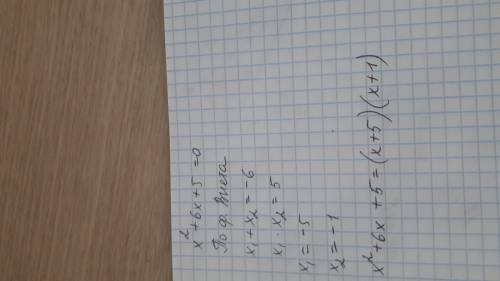 x²+6x+5=0
По ф. Виета
x₁+x₂=-6
x₁·x₂=5
x₁=-5
x₂=-1
x²+6x+5=(x+5)(x+1)